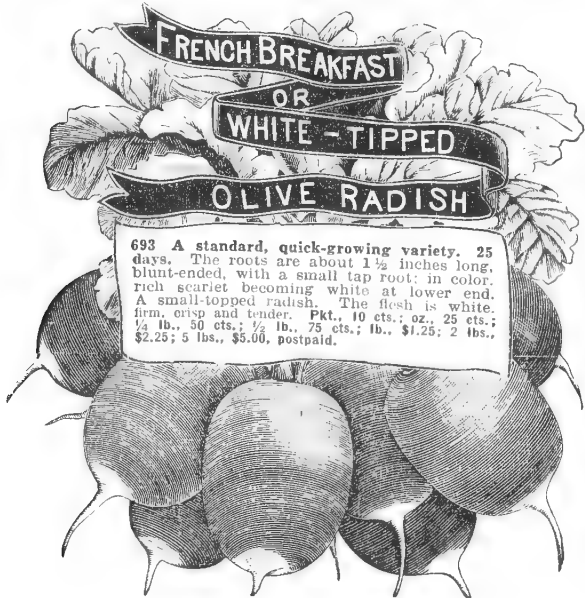 FRENCH BREAKFAST
OR
WHITE-TIPPED
OLIVE RADISH
693 A standard, quick-growing variety. 25
days. The roots are about 1½ inches long,
blunt-ended, with a small tap root; in color.
rich scarlet becoming white at lower end.
A small-topped radish. The flesh is white.
firm, crisp and tender. Pkt., 10 cts.; oz., 25 cts.;
¼ lb., 50 cts.; ½ lb., 75 cts.; lb., $1.25; 2 lbs.,
$2.25; 5 lbs., $5.00, postpaid.